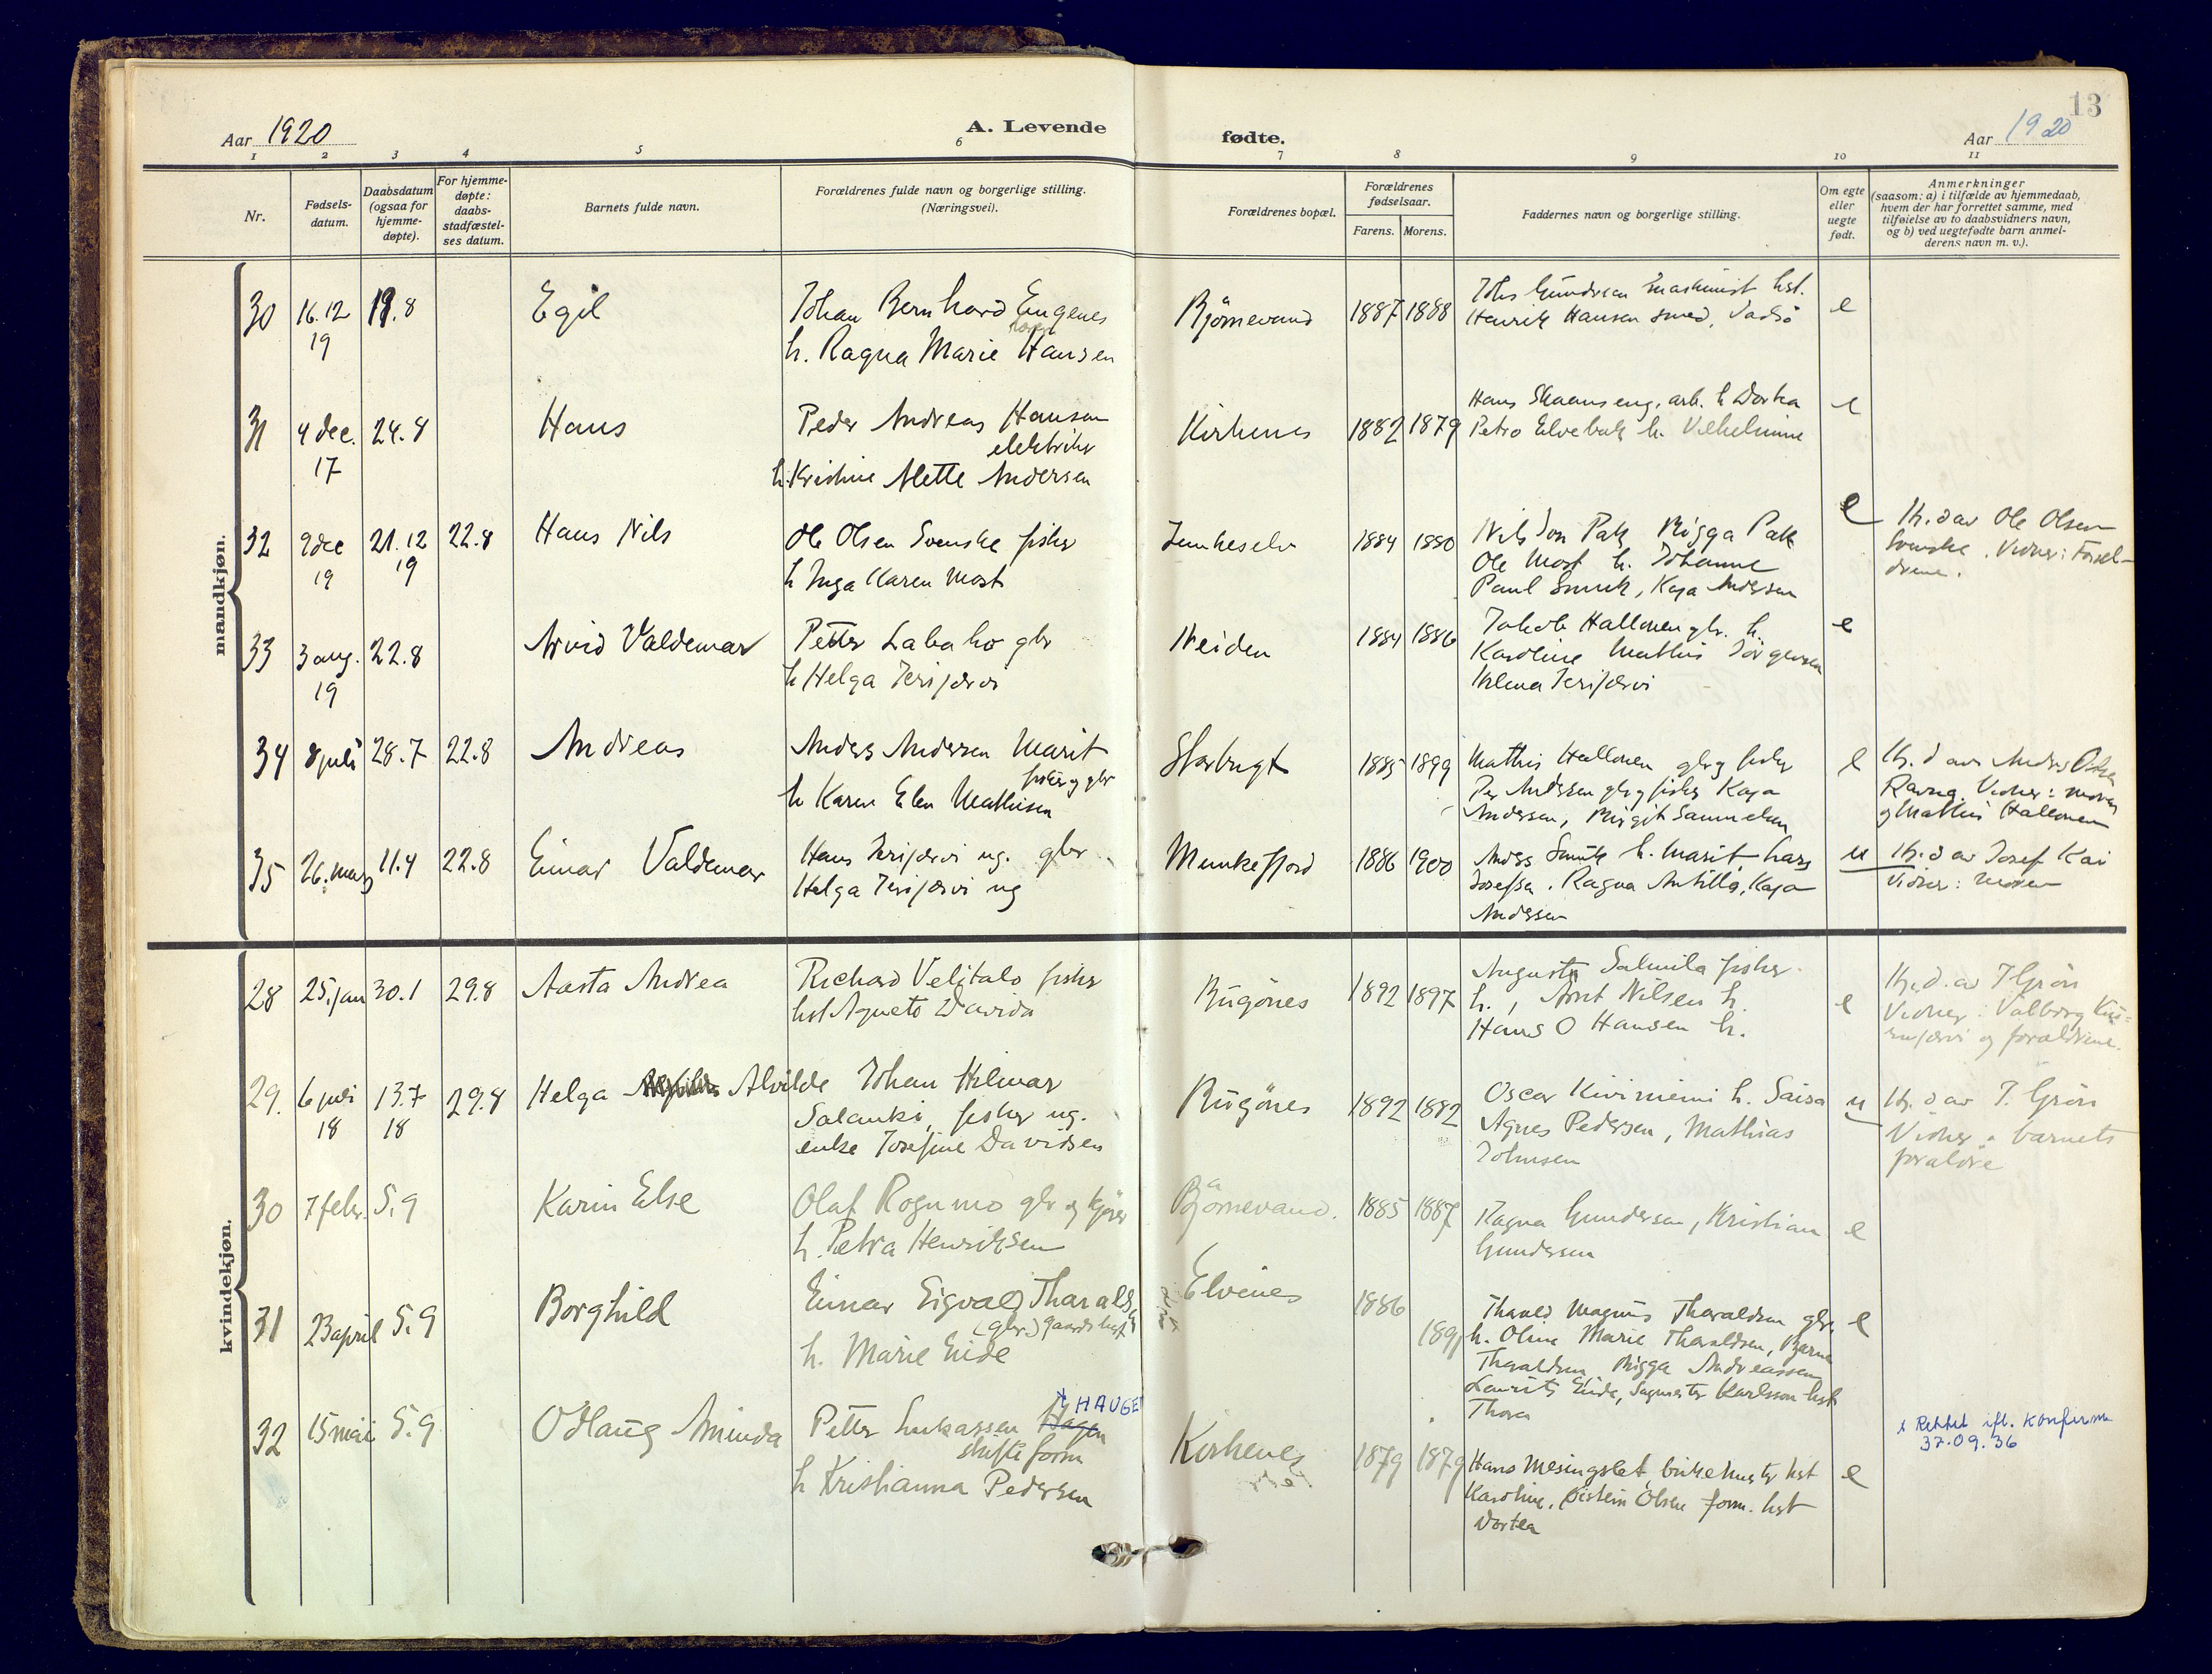 13
Aar 1920
A. Levende
fødte.
Aar 1920
1 2 3 4 5 6 7 8 9 10 11
Nr.
Fødsels-
datum.
Daabsdatum
(ogsaa for
hjemme-
døpte).
For hjemme-
døpte:
daabs-
stadfæstel-
ses datum.
Barnets fulde navn.
Forældrenes fulde navn og borgerlige stilling.
(Næringsvei).
Forældrenes bopæl.
Forældrenes
fødselsaar.
Farens. Morens.
Faddernes navn og borgerlige stilling.
Om egte
eller
uegte
født.
Anmerkninger
(saasom: a) i tilfælde av hjemmedaab,
hvem der har forrettet samme, med
tilføielse av to daabsvidners navn,
og b) ved uegtefødte barn anmel-
derens navn m. v.).
mandkjøn.
30 16.12 19 19.8 Egil
Johan Bernhard Eugenes
h. Ragna Marie Hansen
Bjørnevand 1887 1888
Johs Gundersen maskinist hst.
Henrik Hansen smed, Vadsö
e
31 4 dec. 17 24.8 Hans
Peder Andreas Hansen
elektriker
h. Kristine Mette Andersen
Kirkenes 1882 1879
Hans Skaanseng, arb. h Dorthea
Petro Elvebak h. Vilhelmine
e
32 9 dec 19 21.12 19 22.8 Hans Nils
Ole Olsen Svenske fisker
h Inga Karen Most
Jemkeselv 1884 1880
Nils Jon Pak Rigga Pak
Ole Most h. Johanne
Paul Smuk, Kaja Andersen
e
Hj. d av Ole Olsen
Svenske. Vidner: Foræl-
drene.
33 3 aug. 19 22.8 Arvid Valdemar
Petter Labaho gbr
h Helga Jerijærvi
Neiden 1884 1886
Jakob Hallonen gbr. h.
Karoline Mathis Jörgensen
Hilma Jerijærvi
e
34 8 juli 28.7 22.8 Andreas
Anders Andersen Marit
fisker og gbr
h Karen Elen Mathisen
Storbugt 1885 1899
Mathis Hallonen gbr og fisker
Per Andersen gbr og fisker Kaja
Andersen, Birgit Samuelsen
e
Hj. d av Anders Olsen
Ravna. Vidner: moren
og Mathis Hallonen
35 26. mars 11.4 22.8 Einar Valdemar
Hans Jerijærvi ug. gbr
Helga Jerijærvi ug
Munkefjord 1886 1900
Anders Smuk h. Marit Lars
Josefsen. Ragna Antilla, Kaja
Andersen
u
Hj. d av Josef Kai
Vidner: moren
kvindekjøn.
28 25. jan 30.1 29.8 Aasta Andrea
Richard Velitalo fisker
hst Agneta Davida
Bugönes 1892 1897
Augusta Salmila fisker.
h., Arnt Nilsen h.
Hans O Hansen h.
e
Hj. d. av J Grön
Vidner: Valborg
og forældrene.
29. 6 juli 18 13.7 18 29.8 Helga Alvilde
Johan Hilmar
Salanki, fisker ug.
enke Josefine Davidsen
Bugönes 1892 1882
Oscar Kiviniemi h. Saisa
Agnes Pedersen, Mathias
Johnsen
u
Hj. d av J. Grön
Vidner: barnets
forældre
30 7 febr. 5.9 Karin Else
Olaf Rognmo gbr og kjörer
h. Petra Henriksen
Bjørnevand. 1885 1887
Ragna Gundersen, Kristian
Gundersen
e
31 23 april 5.9 Borghild
Einar Sigvald Tharaldsen
(gbr.) gaardsbest
h. Marie Eide
Elvenes 1886 1891
Tharald Magnus Tharaldsen gbr.
h. Oline Marie Tharaldsen, Bjarne
Tharaldsen, Rigga Andreassen
Laurits Eide, Sagmester Karlsson hst
Thora
e
32 15 mai 5.9 Odlaug Aminda
Petter Lukassen Hagen
x HAUGE
skifteform
h Kristianna Pedersen
Kirkenes 1879 1879
Hans Mesingslet, birkemester hst
Karoline, Öistein Olsen form. hst
Dortea
e
x Rettet ifl. Konfirm
37.09.36